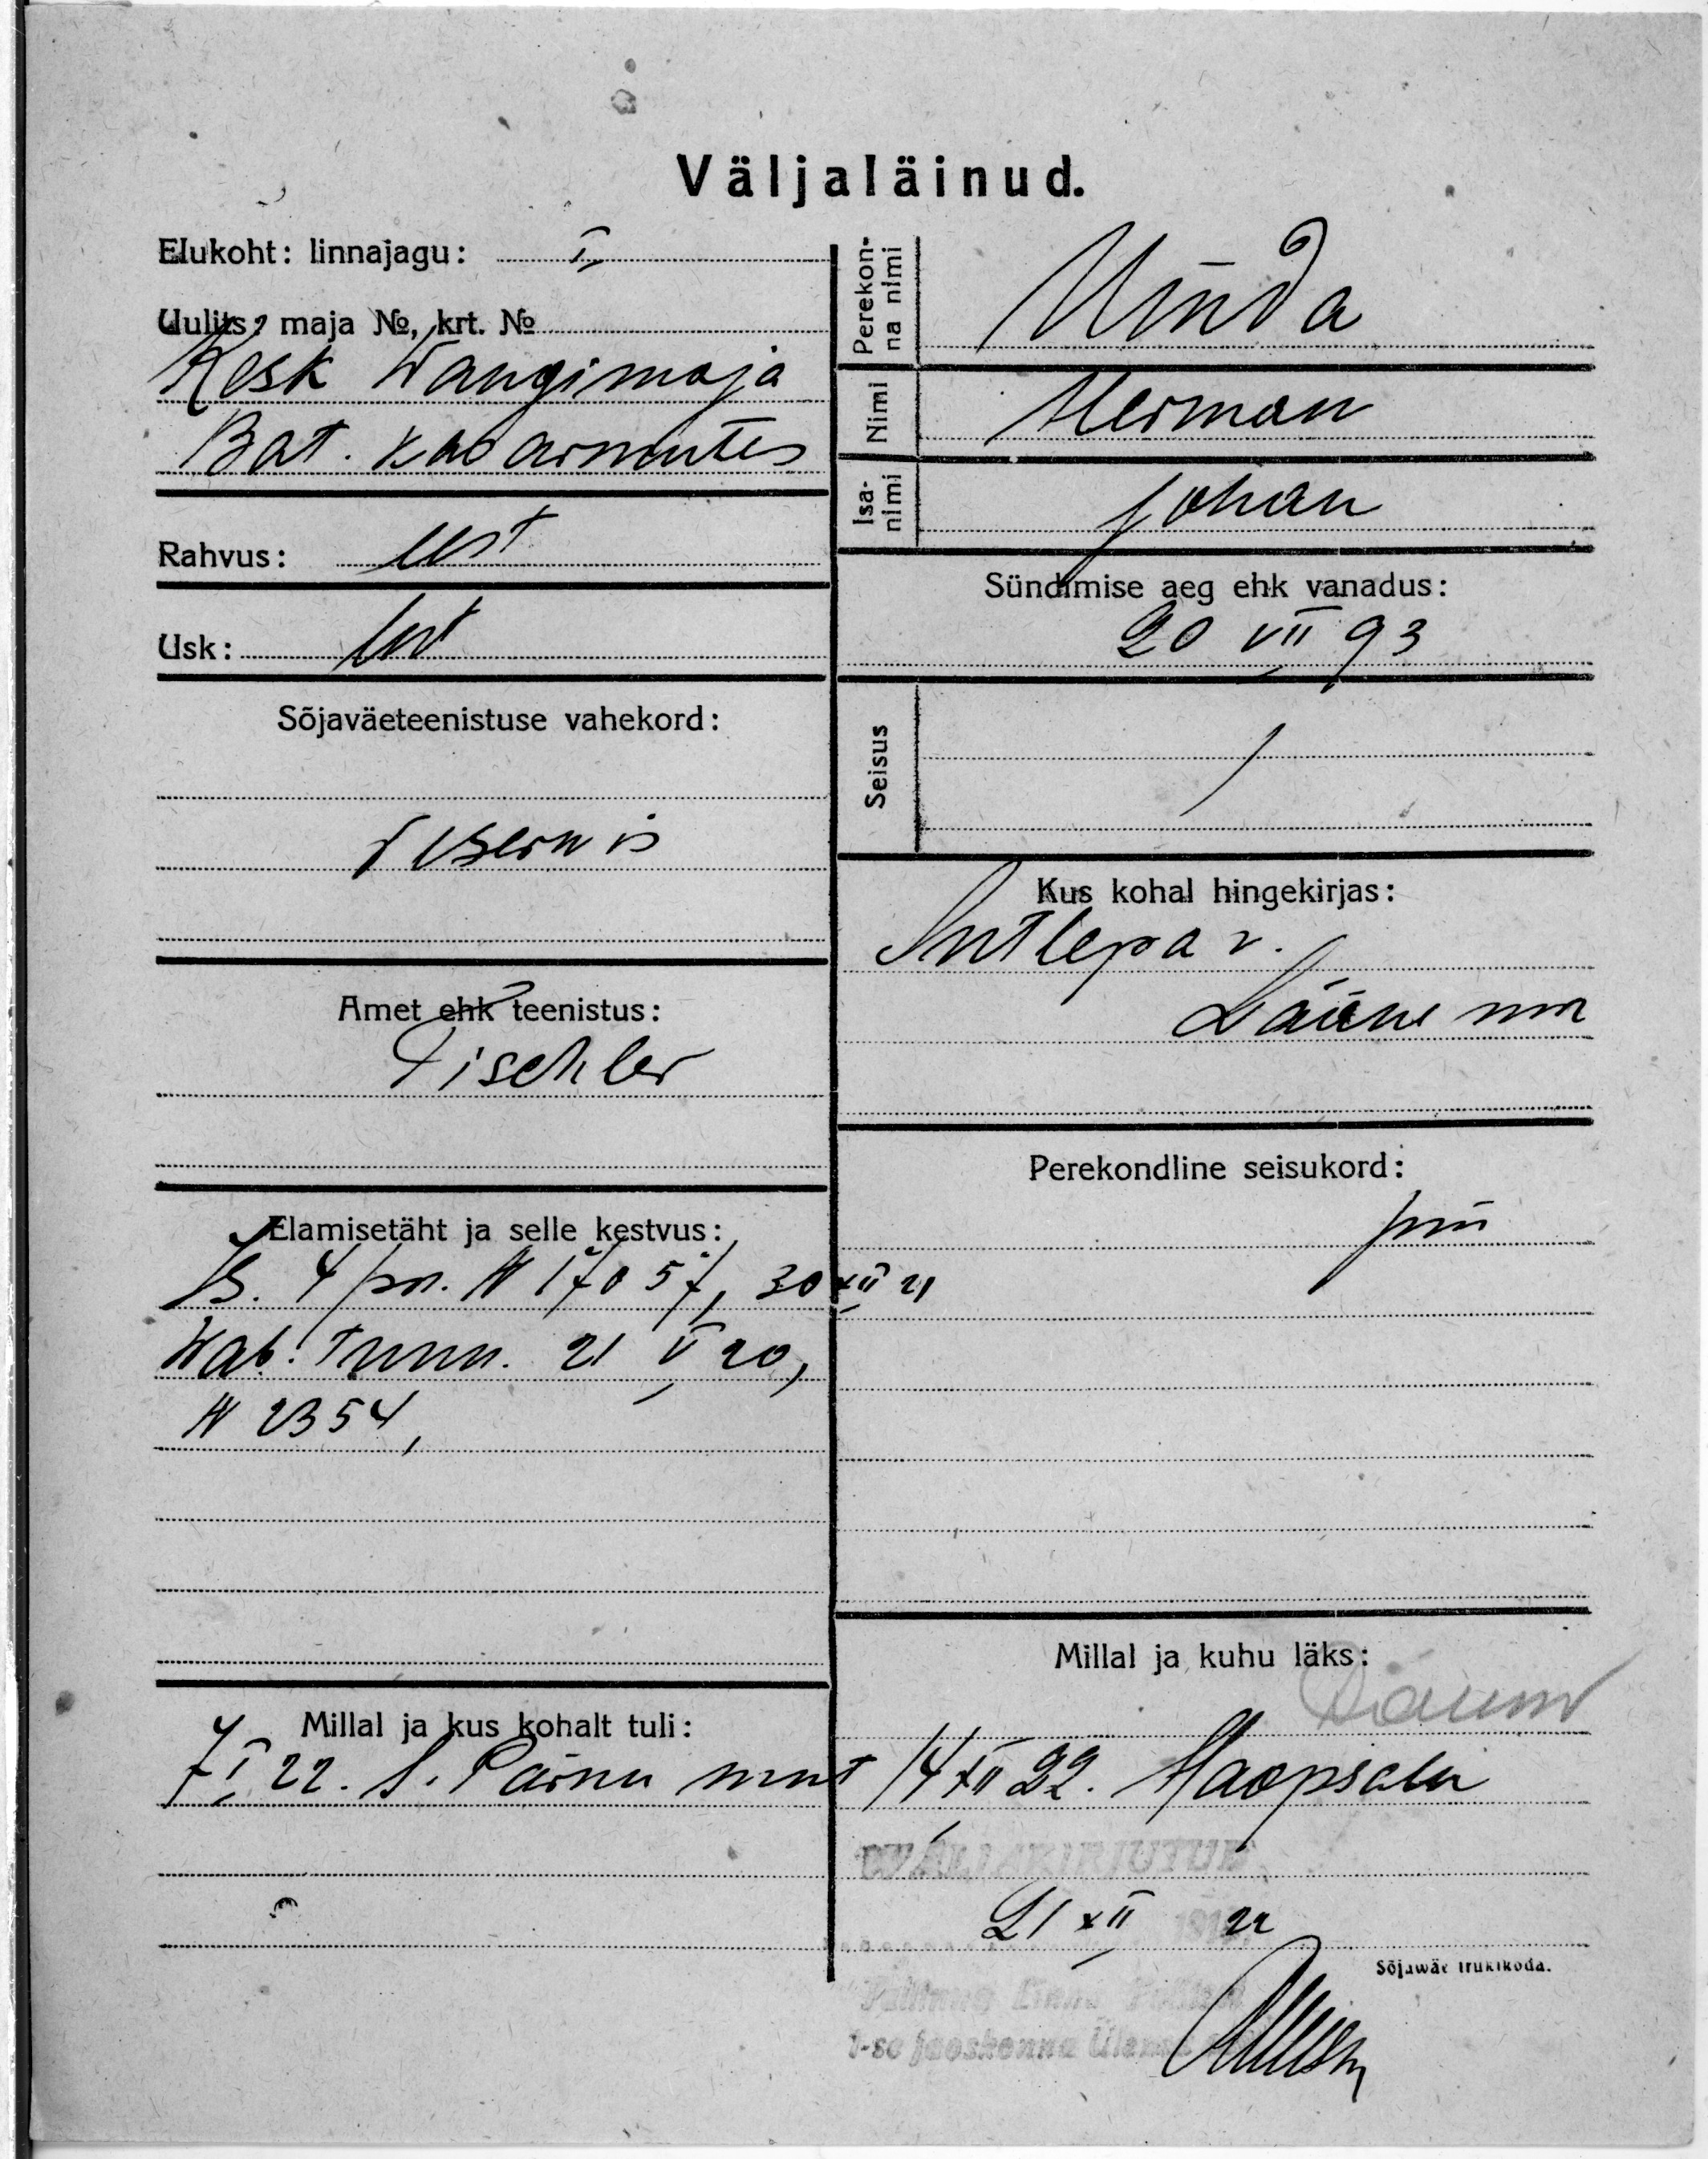 Väljaläinud.
Elukoht: linnajagu: I
Uulits, maja №, krt. №
Kesk Wangimaja
Bat. kasarmutes
Rahvus: eest
Usk: lut
Sõjaväeteenistuse vahekord:
reserwis
Amet ehk teenistus:
Tischler
Elamisetäht ja selle kestvus:
N 17057, 30 XII 21
Wab. Tunn. 21 V 20,
N 2354,
Millal ja kus kohalt tuli:
7 I 22. Pärnu mnt
Perekonna nimi
Nimi
Herman
Isanimi
Johan
Sündimise aeg ehk vanadus:
20 VII 93
Seisus
/
Kus kohal hingekirjas:
Sutlepa v.
Lääne mn
Perekondline seisukord:
Millal ja kuhu läks:
14 XII 22. Haapsalu
WÄLJAKIRJUTUD
21 XII 22
Tallinna Linna Politsei
1-se jaoskonna Ülem
Sõjawäe trükikoda.